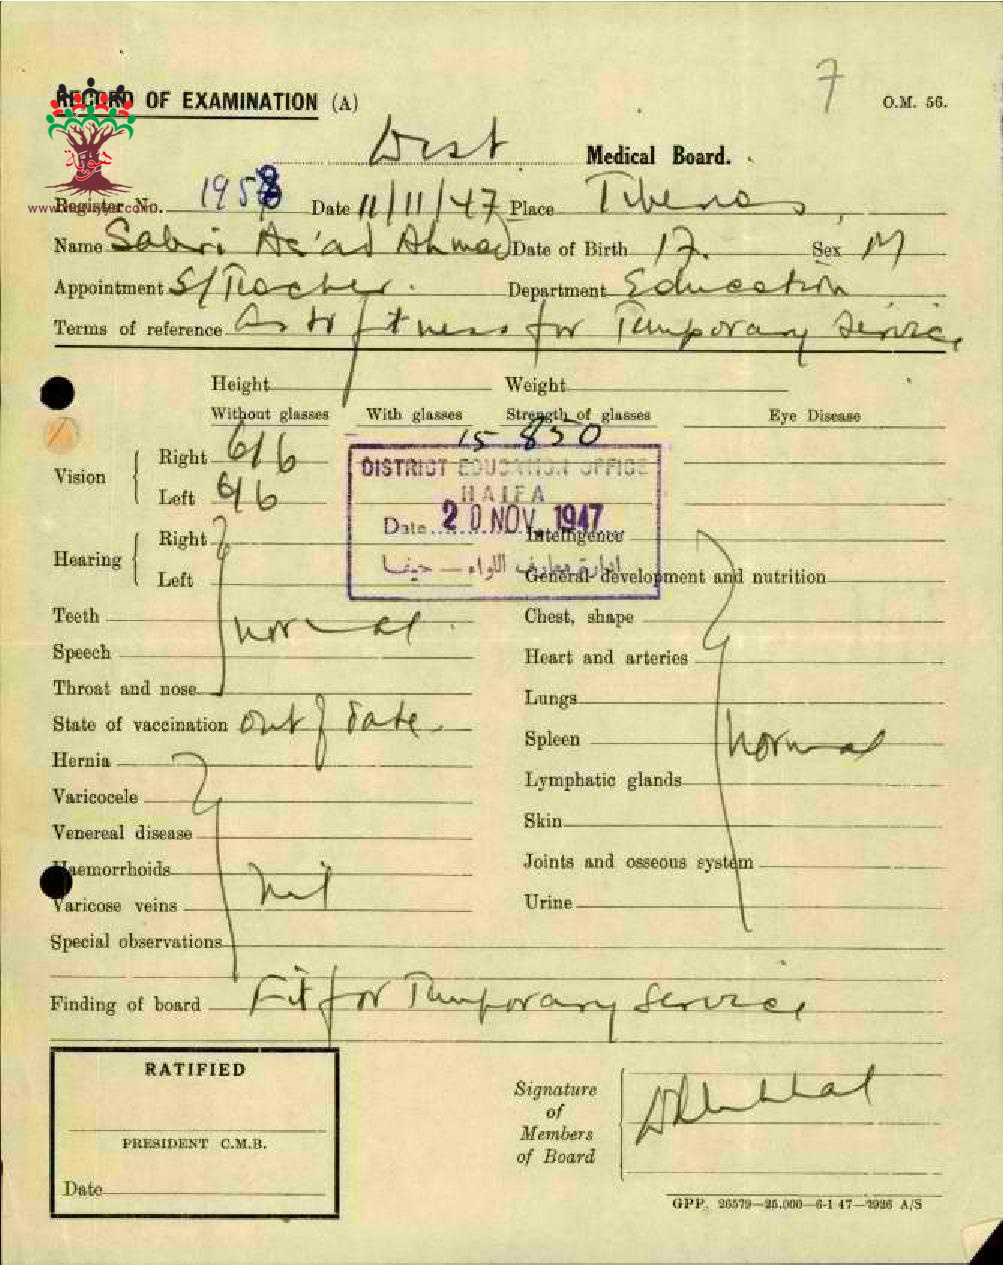 7
RECORD OF EXAMINATION (A)
O.M. 56.
Dist Medical Board.
Register No. 1958 Date 11/11/47 Place Tiberias
Name Sabri As'ad Ahmad Date of Birth 17. Sex M
Appointment S/Teacher. Department Education
Terms of reference As to fitness for Temporary Service
Height Weight
Without glasses With glasses Strength of glasses Eye Disease
15 850
Vision Right 6/6
Left 6/6
DISTRICT EDUCATION OFFICE
HAIFA
Date 20 NOV. 1947
ادارة معارف اللواء — حيفا
Hearing Right
Left
Teeth
Speech
Throat and nose
normal.
State of vaccination out of date
Hernia
Varicocele
Venereal disease
Haemorrhoids
Varicose veins
nil
Intelligence
General development and nutrition
Chest, shape
Heart and arteries
Lungs
Spleen
Lymphatic glands
Skin
Joints and osseous system
Urine
normal
Special observations
Finding of board Fit for Temporary Service
RATIFIED
PRESIDENT C.M.B.
Date
Signature
of
Members
of Board
GPP. 26579—25.000—6-1 47—2926 A/S